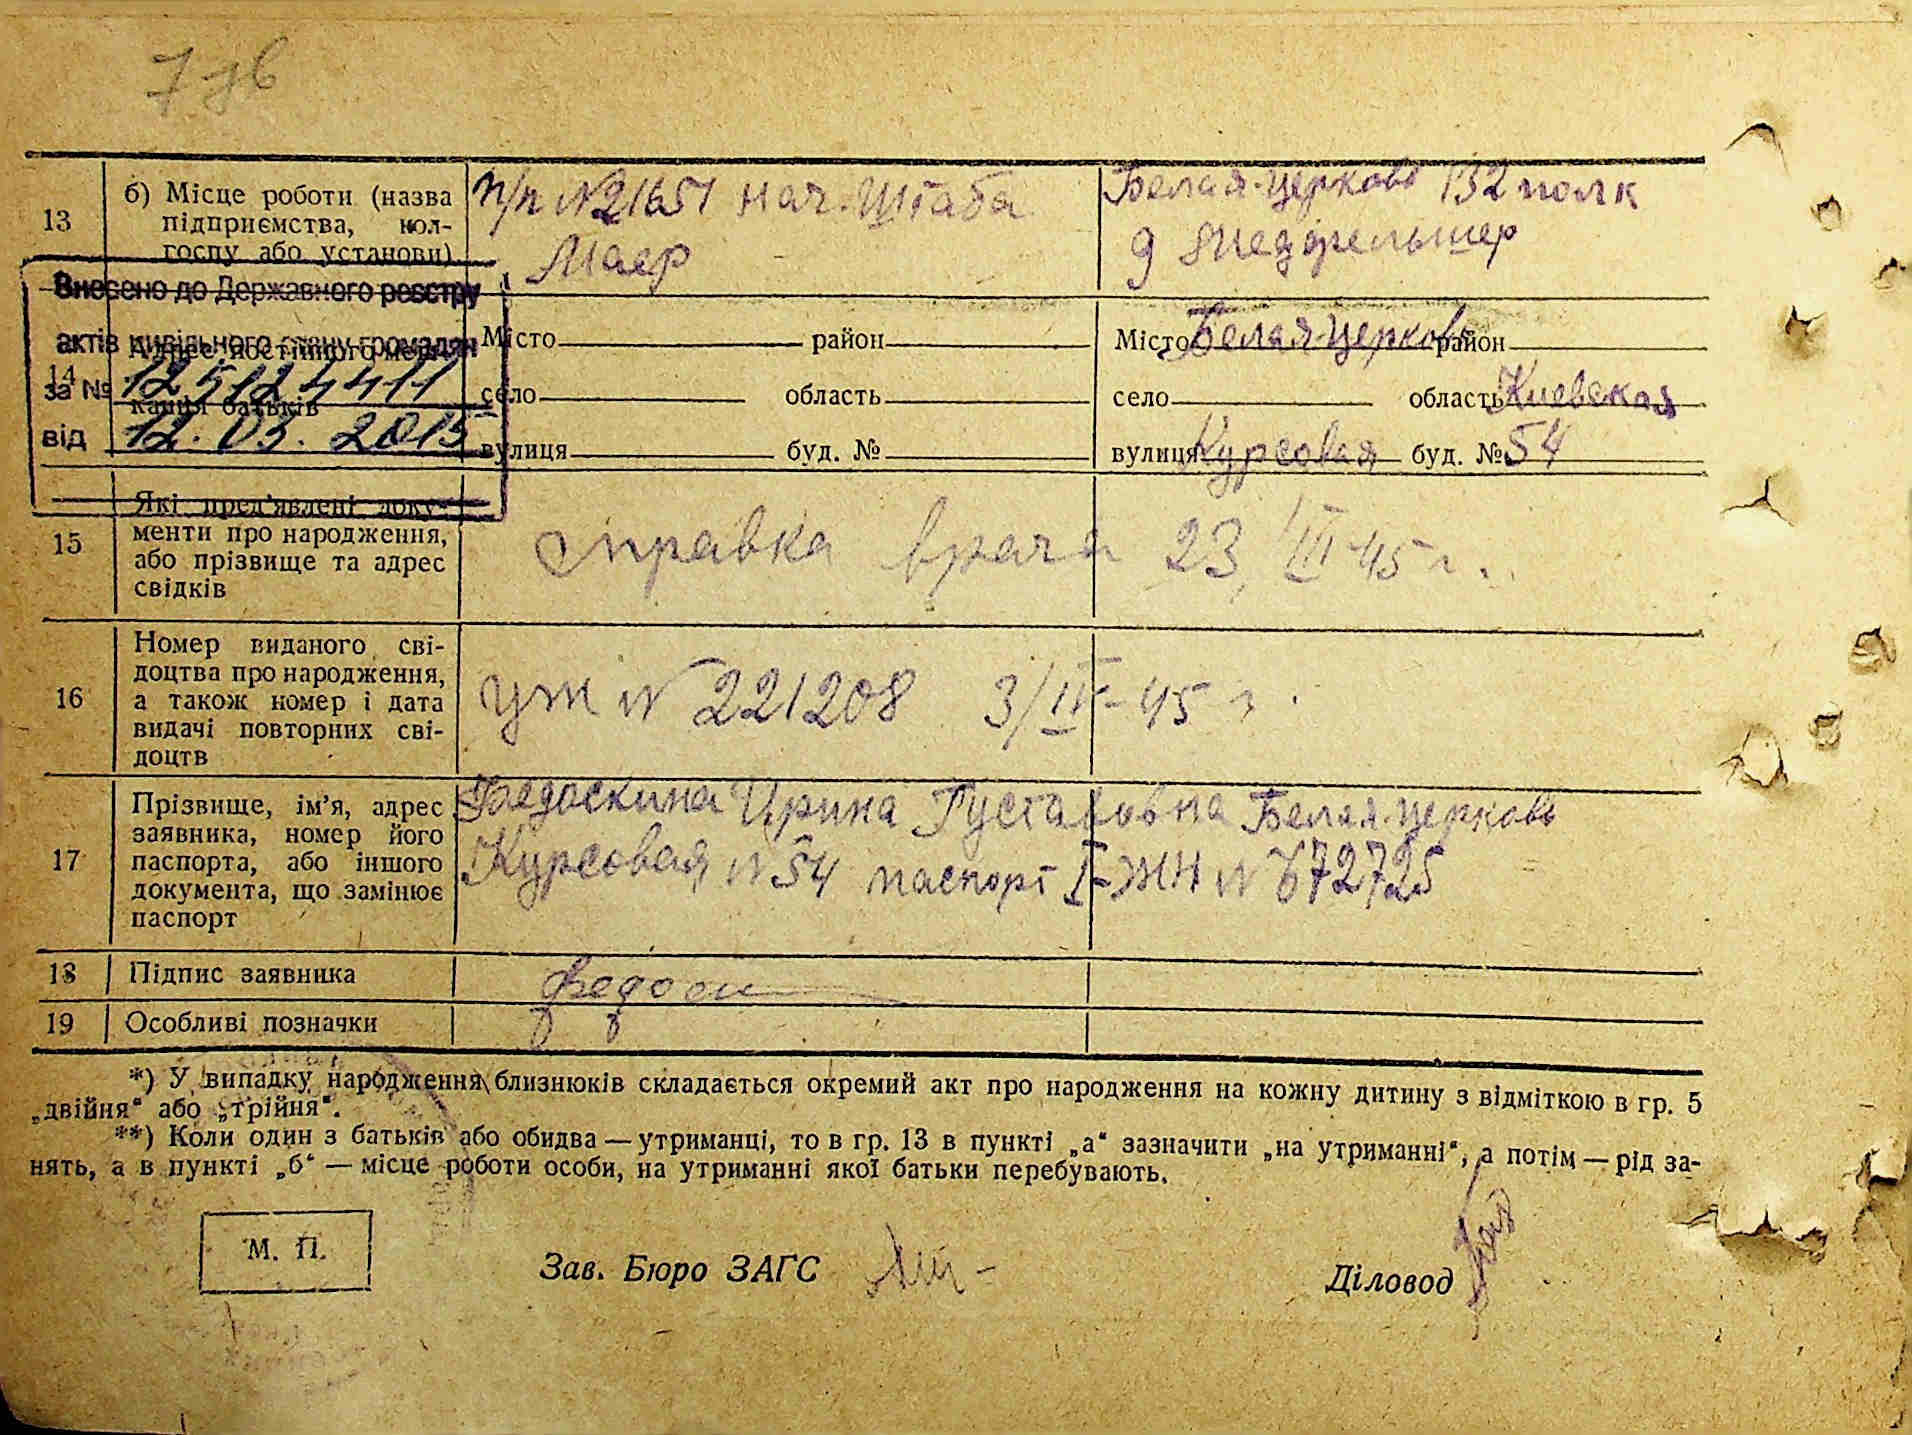 7 зв
13
б) Місце роботи (назва
підприємства, кол-
госпу або установи)
п/п №21651 нач. Штаба
Маер
Белая-церковь 132 полк
медфельшер
Внесено до Державного реєстру
актів цивільного стану громадян
за № 125124411
від 12.03.2015
14
Адрес постійного меш-
кання батьків
Місто район
село область
вулиця буд. №
Місто Белая-церковь район
село область Киевская
вулиця Курсовая буд. № 54
15
Які пред'явлені доку-
менти про народження,
або прізвище та адрес
свідків
справка врача 23/III-45 г.
16
Номер виданого сві-
доцтва про народження,
а також номер і дата
видачі повторних сві-
доцтв
УЖ № 221208 3/IV-45 г.
17
Прізвище, ім'я, адрес
заявника, номер його
паспорта, або іншого
документа, що замінює
паспорт
Федоскина Ирина Густавовна Белая-церковь
Курсовая № 54 паспорт I-ЖН № 672725
18
Підпис заявника
Федоси
19
Особливі позначки
*) У випадку народження близнюків складається окремий акт про народження на кожну дитину з відміткою в гр. 5
„двійня“ або „трійня“.
**) Коли один з батьків або обидва — утриманці, то в гр. 13 в пункті „а“ зазначити „на утриманні“, а потім — рід за-
нять, а в пункті „б“ — місце роботи особи, на утриманні якої батьки перебувають.
М. П.
Зав. Бюро ЗАГС
Діловод